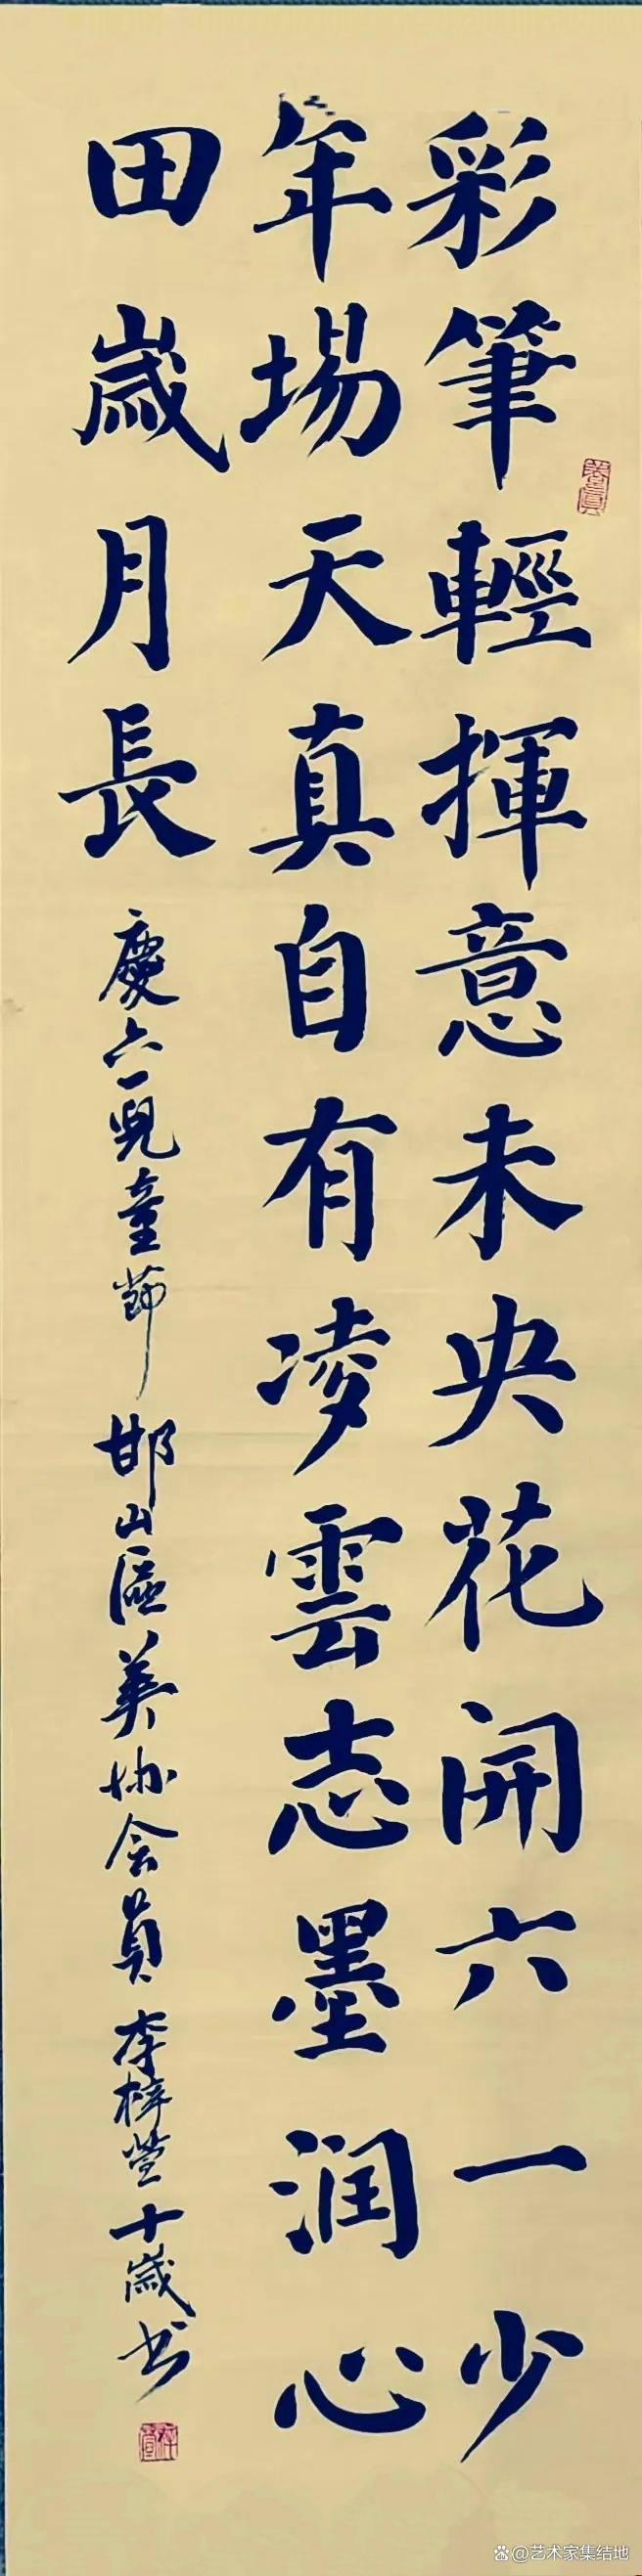 彩筆輕揮意未央花開六一少
年場天真自有凌雲志墨润心
田歲月長
慶六一兒童節 邯山區美协会員 李梓萱十歲书
@艺术家集结地